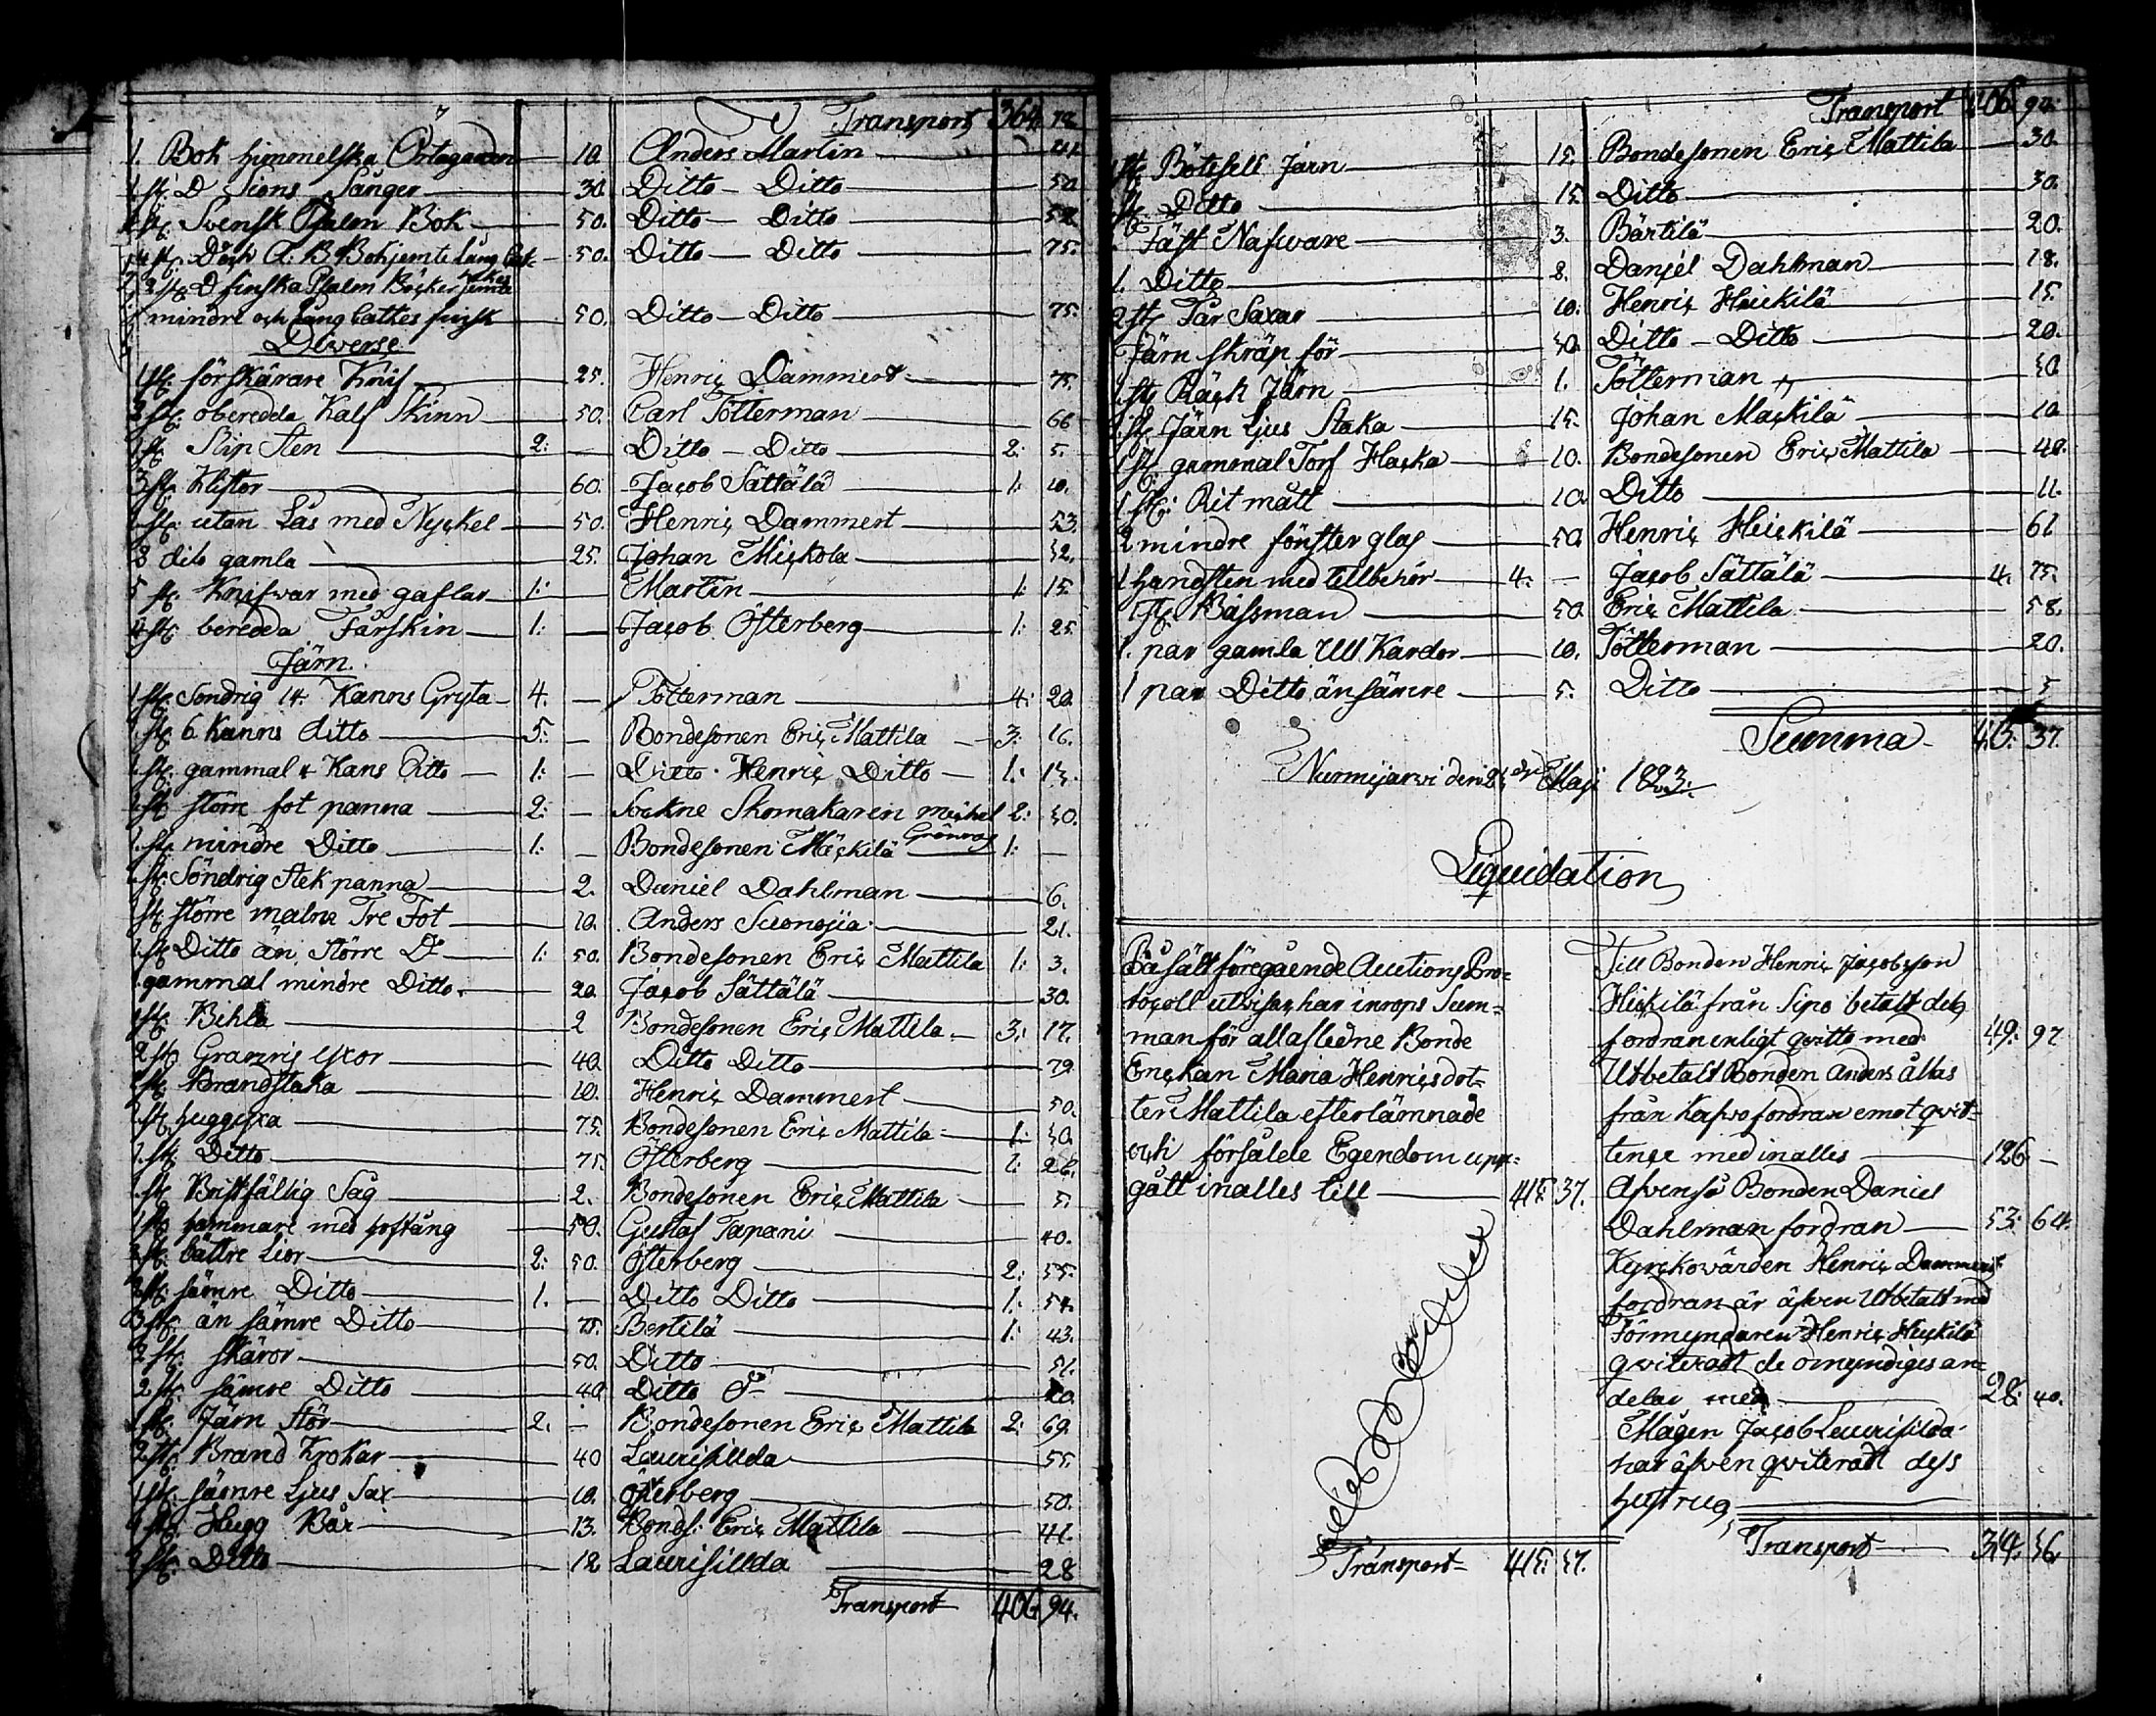 Transport 364. 72
1. Bok himmelska Örtagården 10. Anders Martin 41
1 st. D Sions Sånger 30. Ditto - Ditto 50.
1 st. Svensk Psalm Bok 50. Ditto - Ditto 52
Ditto - Ditto 75.
50.
2 st. D finska Psalm Böcker jemte
mindre och lång finsk 50. Ditto - Ditto 75.
Diverse
1 st. förskärare Knif 25. Henric Dammert 75.
3 st. oberedda Kalf Skinn 50. Carl Tötterman 66
1 st. Slip Sten 2: — Ditto - Ditto 2: 5.
3 st. Klistor 60. Jacob Sättälä 1: 10.
1 st. utan Lås med Nyckel 50. Henric Dammert 53.
3 dito gamla 25. Johan Mickola 52.
5 st. Knifwar med gaflar 1: — Martin 1: 15.
4 st. beredda Fårskin 1: — Jacob Österberg 1: 25.
Järn.
1 st. Söndrig 14. Kanns Gryta 4. — Tötterman 4: 20.
1 st. 6 Kanns ditto 5: — Bondesonen Eric Mattila 3: 16.
1 st. gammal 4 Kans Ditto 1: — Ditto. Henric Ditto 1: 15.
1 st. större fot panna 2: — Sockne Skomakaren Michel 2: 50.
Grönros
1 st. mindre Ditto 1: — Bondesonen Mäckilä 1: —
1 st. Söndrig Stek panna 2. Daniel Dahlman 6.
1 st. större malm Tre Fot 10. Anders Suonojia 21.
1 st. Ditto än Större Do 1: 50. Bondesonen Eric Mattila 1: 3.
1. gammal mindre Ditto. 20. Jacob Sättälä 30.
1 st. Bihla 2 Bondesonen Eric Mattila 3: 17.
2 st. Granris yxor 40. Ditto Ditto 79.
1 st. Brandstaka 10. Henric Dammert 50.
1 st. huggyxa 75. Bondesonen Eric Mattila 1: 50.
1. st. Ditto 75. Österberg 1: 26.
1. st. Bristfällig Såg 2. Bondesonen Eric Mattila 5.
1 st. hammare med hoftång 50. Gustaf Tapani 40.
3 st. bättre Lior 2: 50. Österberg 2: 55.
2 st. sämre Ditto 1. — Ditto Ditto 1: 54.
3 st. än sämre Ditto 75. Bertilä 1: 43.
2 st. skäror 50. Ditto 51.
2 st. sämre Ditto 40. Ditto 20.
1 st. Järn Stör 2. — Bondesonen Eric Mattila 2: 69.
2 st. Brand Krokar 40 Laurisillda 55.
1 st. sämre Ljus Sax 10. Österberg 50.
1 st. Hugg Bår 13. Bonds: Eric Mattila 41.
1 st. Ditto 12 Laurisillda 28
Transport 406. 94.
Transport 406. 94.
1 st. Bötesele Järn 15. Bondesonen Eric Mattila 30.
1 st. Ditto 15. Ditto 30.
1. Täljt Nafware 3. Bärtilä 20.
1. Ditto 8. Daniel Dahlman 18.
2 st. Får Saxar 10. Henric Heickilä 15.
Järn skräp för 50. Ditto - Ditto 20.
1 st. Räck Järn 1. Tötterman 50.
1 st. Järn Ljus Staka 15. Johan Mackilä 10
1 st. gammal Torf Hacka 10. Bondesonen Eric Mattila 48.
1 st. Rit mått 10. Ditto 11.
2 mindre fönster glas 50. Henric Heickilä 61
1 handsten med tillbehör 4. — Jacob Sättälä 4. 75.
1 st. Bässman 50. Eric Mattila 58.
1. par gamla Ull Kardor 10. Tötterman 20.
1 par Ditto än sämre 5. Ditto 5
Summa 415. 37.
Nurmijärwi den Maji 1823.
Liquidation
På sätt föregående Auctions Pro=
tocoll utwisar, har inrops Sum=
man för all afledne Bonde
Enckan Maria Henricsdot=
ter Mattila efterlämnade
och försålde Egendom upp=
gått inalles till 415. 37.
Transport 415. 37.
Till Bonden Henric Jacobsson
Heickilä från Sipo betalt dess
fordran enligt qvitto med 49: 97
Utbetalt Bonden Anders Ållas
från fordran emot qvit=
tence med inalles 126 —
Äfvenså Bonden Daniel
Dahlman fordran 53: 64.
Kyrckowärden Henric Dammerts
fordran är äfven Utbetalt med
Förmyndaren Henric Heickilä
qviterat de omyndiges an=
delar med 28: 40.
Mågen Jacob Laurisillda
har äfven qviterat dess
hustrus
Transport 314. 56.